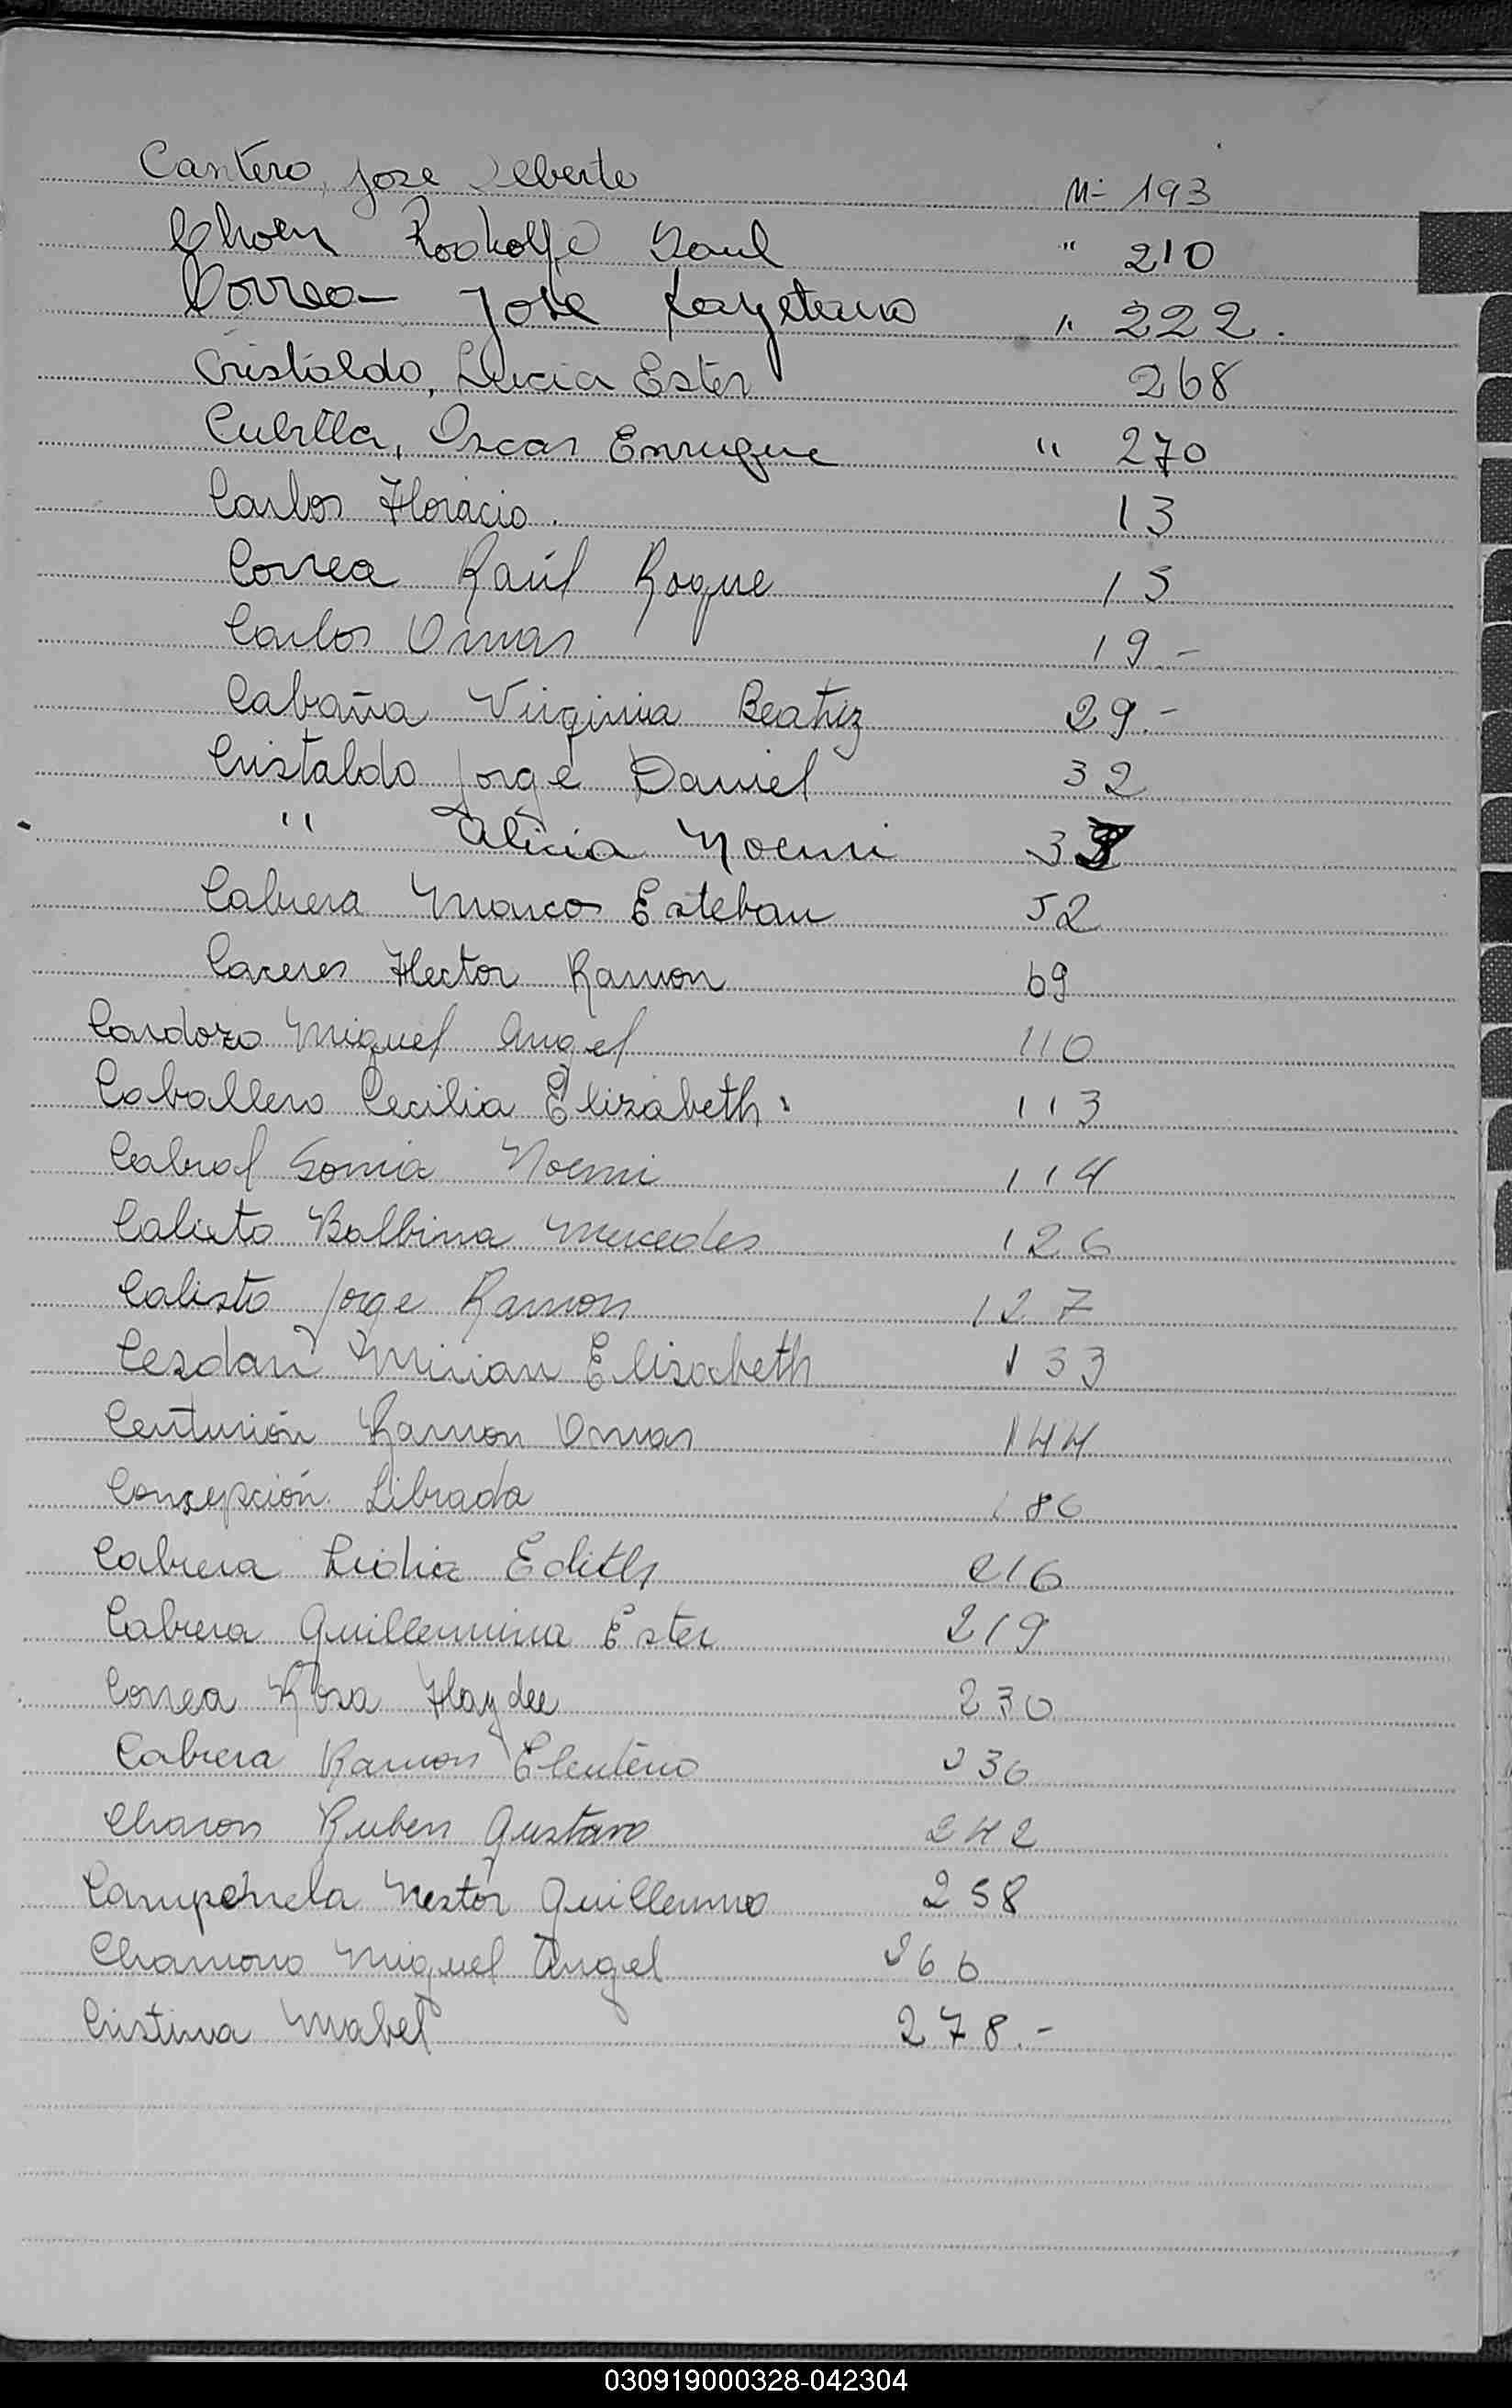 Cantero, Jose Alberto Nº 193
Choen Rodholfo Saul " 210
Correa Jose Kayetano " 222.
Cristaldo, Lucia Ester 268
Cubilla, Oscar Enrrique " 270
Carlos Horacio. 13
Correa Raúl Roque 15
Carlos Omar 19.-
Cabaña Virginia Beatriz 29.-
Cristaldo Jorge Daniel 32
" Alicia Noemi 33
Cabrera Marcos Esteban 52
Caceres Hector Ramon 69
Cardozo Miguel Angel 110
Caballero Cecilia Elizabeth. 113
Cabral Sonia Noemi 114
Calixto Balbina Mercedes 126
Calisto Jorge Ramon 127
Cesdan Mirian Elisabeth 133
Centurión Ramon Omar 144
Concepción Librada 186
Cabrera Lidia Edith 216
Cabrera Guillermina Ester 219
Correa Rosa Haydee 230
Cabrera Ramon Eleuterio 236
Charon Ruben Gustavo 242
Nestor Guillermo 258
Chamorro Miguel Angel 266
Cristina Mabel 278.-
030919000328-042304